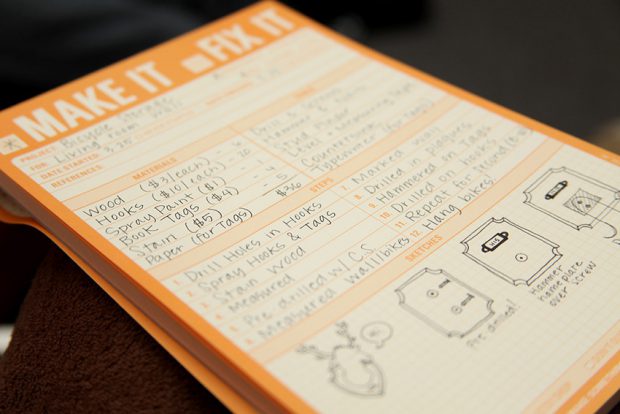 MAKE IT FIX IT
PROJECT: Bicycle Storage
FOR: Living Room
DATE STARTED: 3.25
REFERENCES:
MATERIALS
Wood ($3/each)
Hooks ($10/each) - 20
Spray Paint ($1)
Book Tags ($4) - 4
Stain ($5) - 5
Paper (for Tags) $36
Drill & Sprays
Stud Finder
Countersink
Typewriter (for tags)
STEPS
1. Drill Holes in Hooks
2. Spray Hooks & Tags
3. Stain Wood
4. Measured
5. Pre drilled w/ C.S.
6. Measured wall/bikes
7. Marked wall
8. Drilled in plaques
9. Hammered on Tags
10. Drilled on Hooks
11. Repeat for second
12. Hang bikes!
SKETCHES
Pre drilled!
Hammer
name plate
over screw